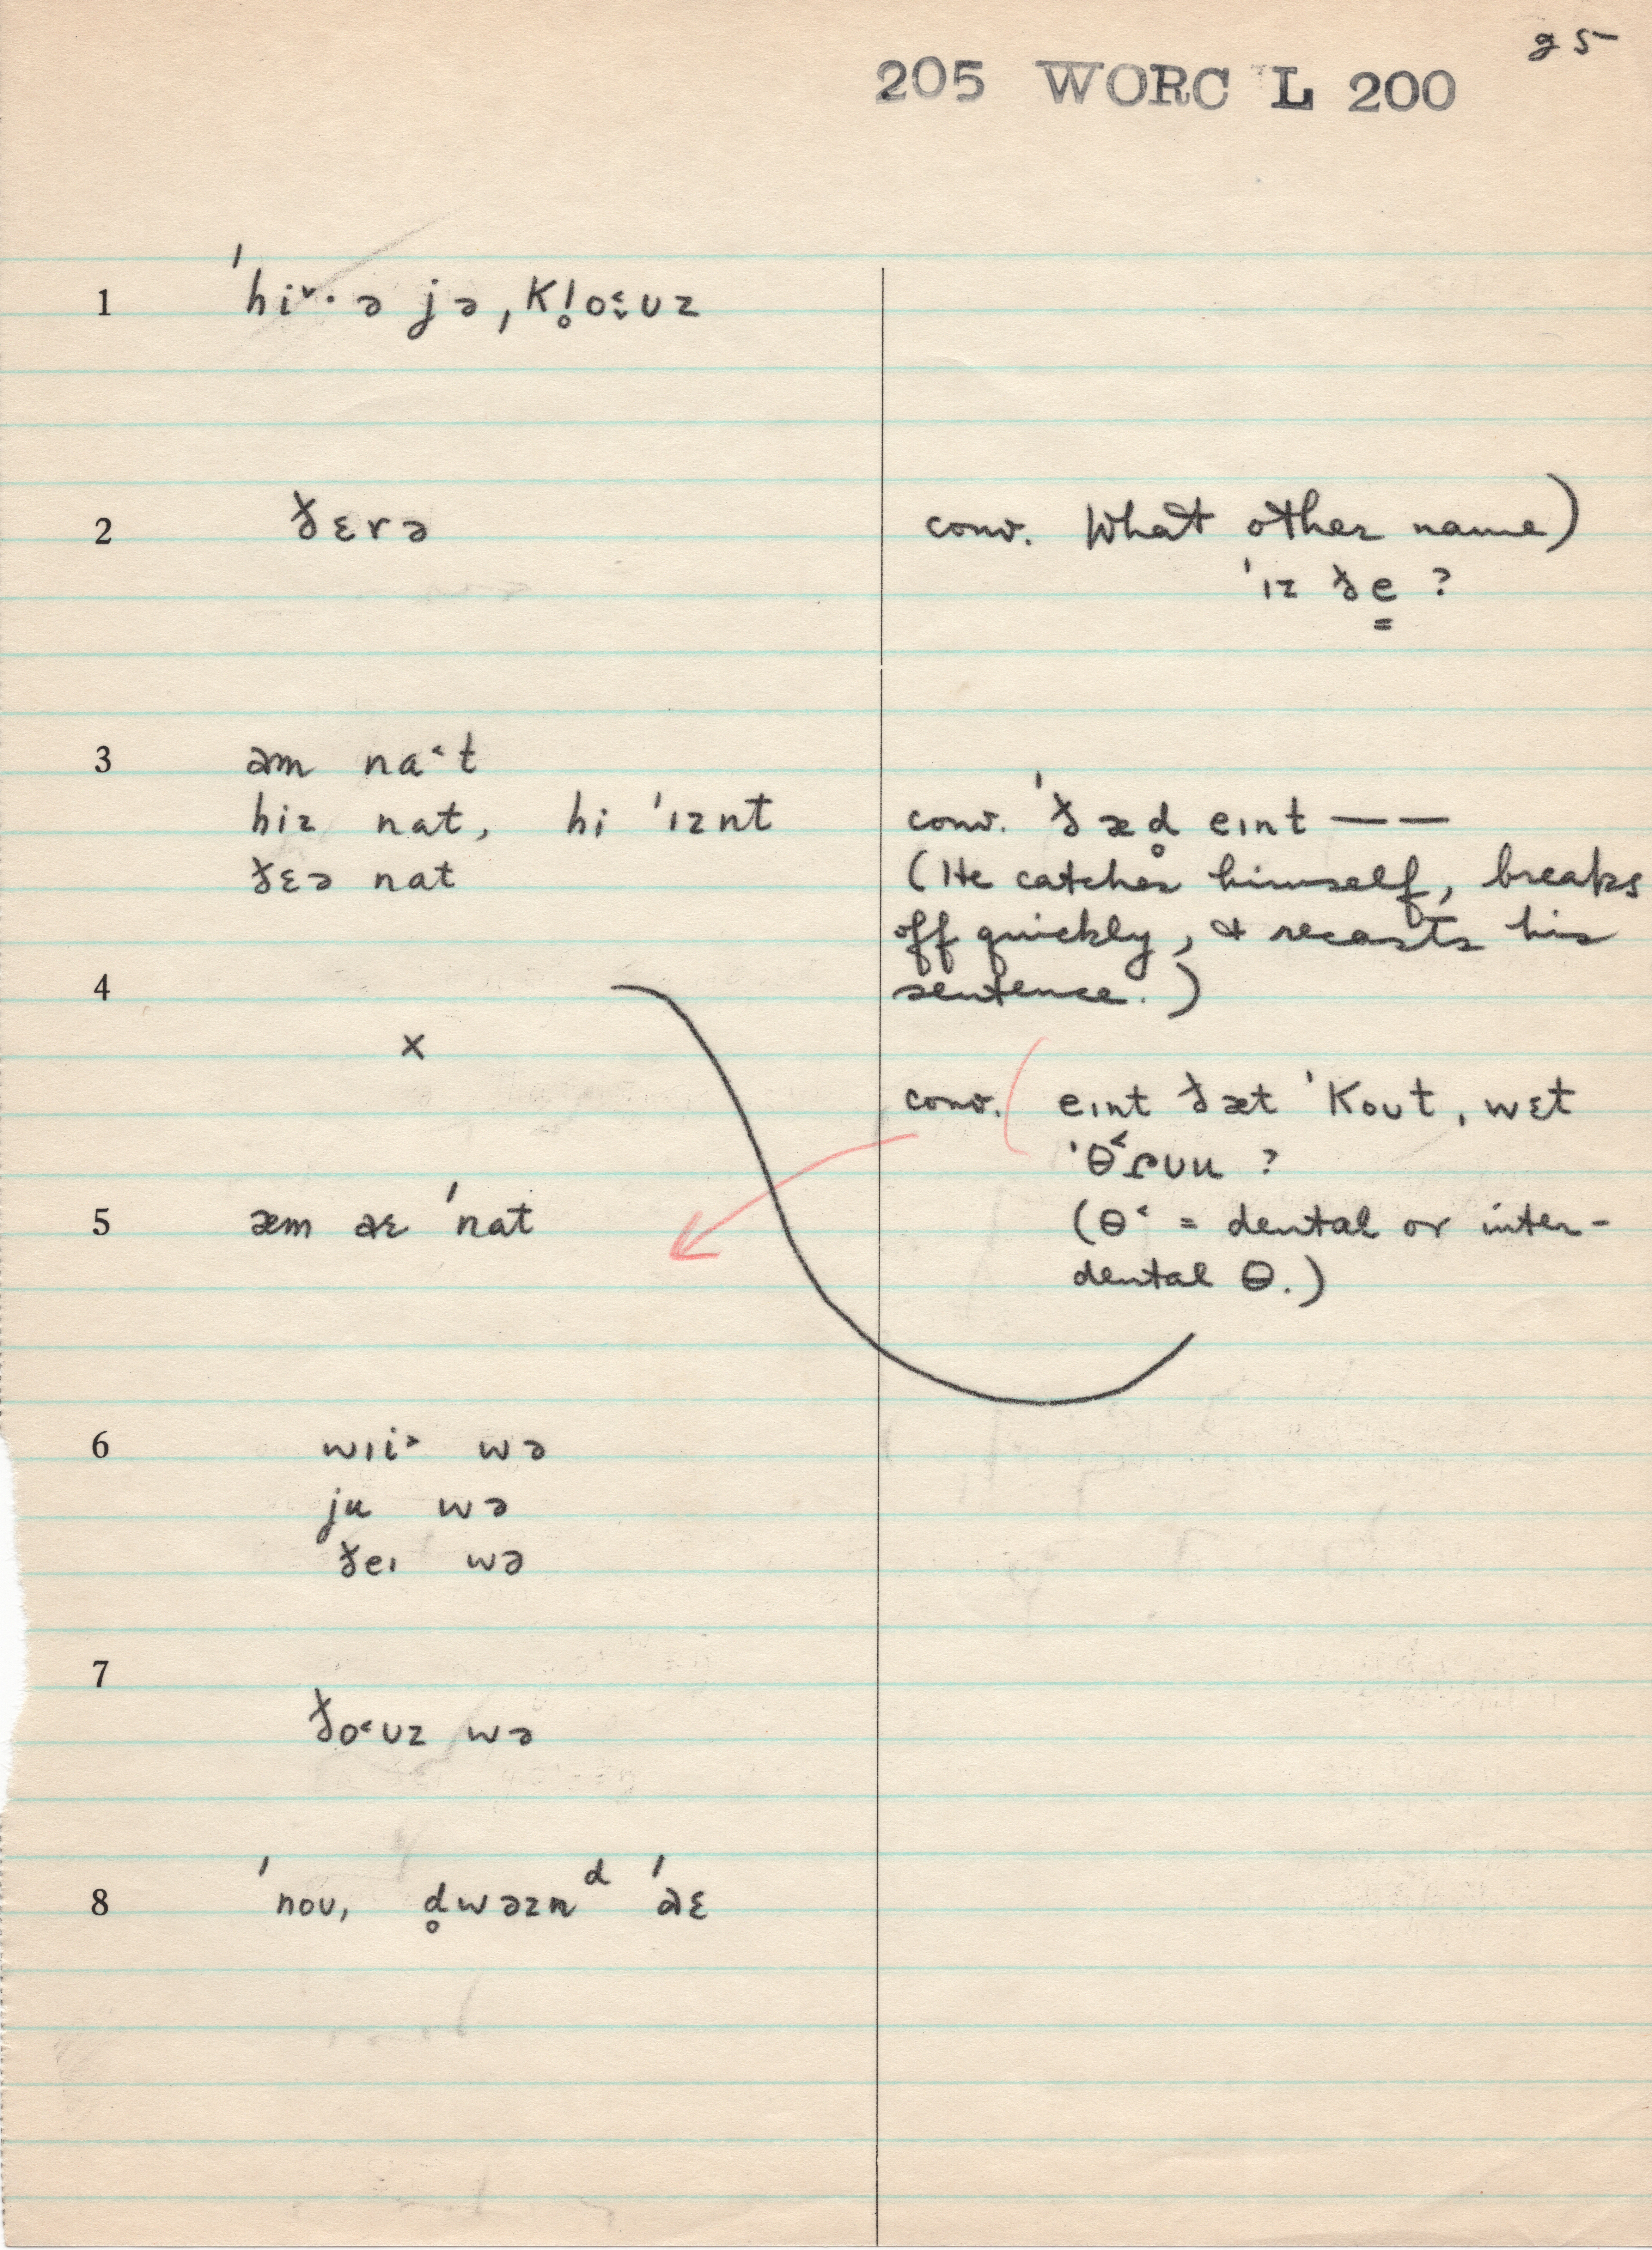 25
205 WORC L 200
1 ˈhi˅· ə jə, ˌKl̥o˂ʊz
2 ðɛrə
conv. What other name)
ˈɪz ðe̳ ?
3 əm na˂t
hiz nat, hi ˈɪznt
conv. ˈðæd̥ eɪnt — —
ðɛə nat
(He catches himself, breaks
off quickly, & recasts his
4
sentence.)
x
conv. ( eɪnt ðæt ˈKoʊt, wɛt
ˈθ˂ɾʊu ?
5 æm aɛ ˈnat
(θ˂ = dental or inter-
dental θ.)
6 wɪi˃ wə
ju wə
ðeɪ wə
7
ðo˂ʊz wə
8 ˈnoʊ, d̥wəznᵈ ˈaɛ